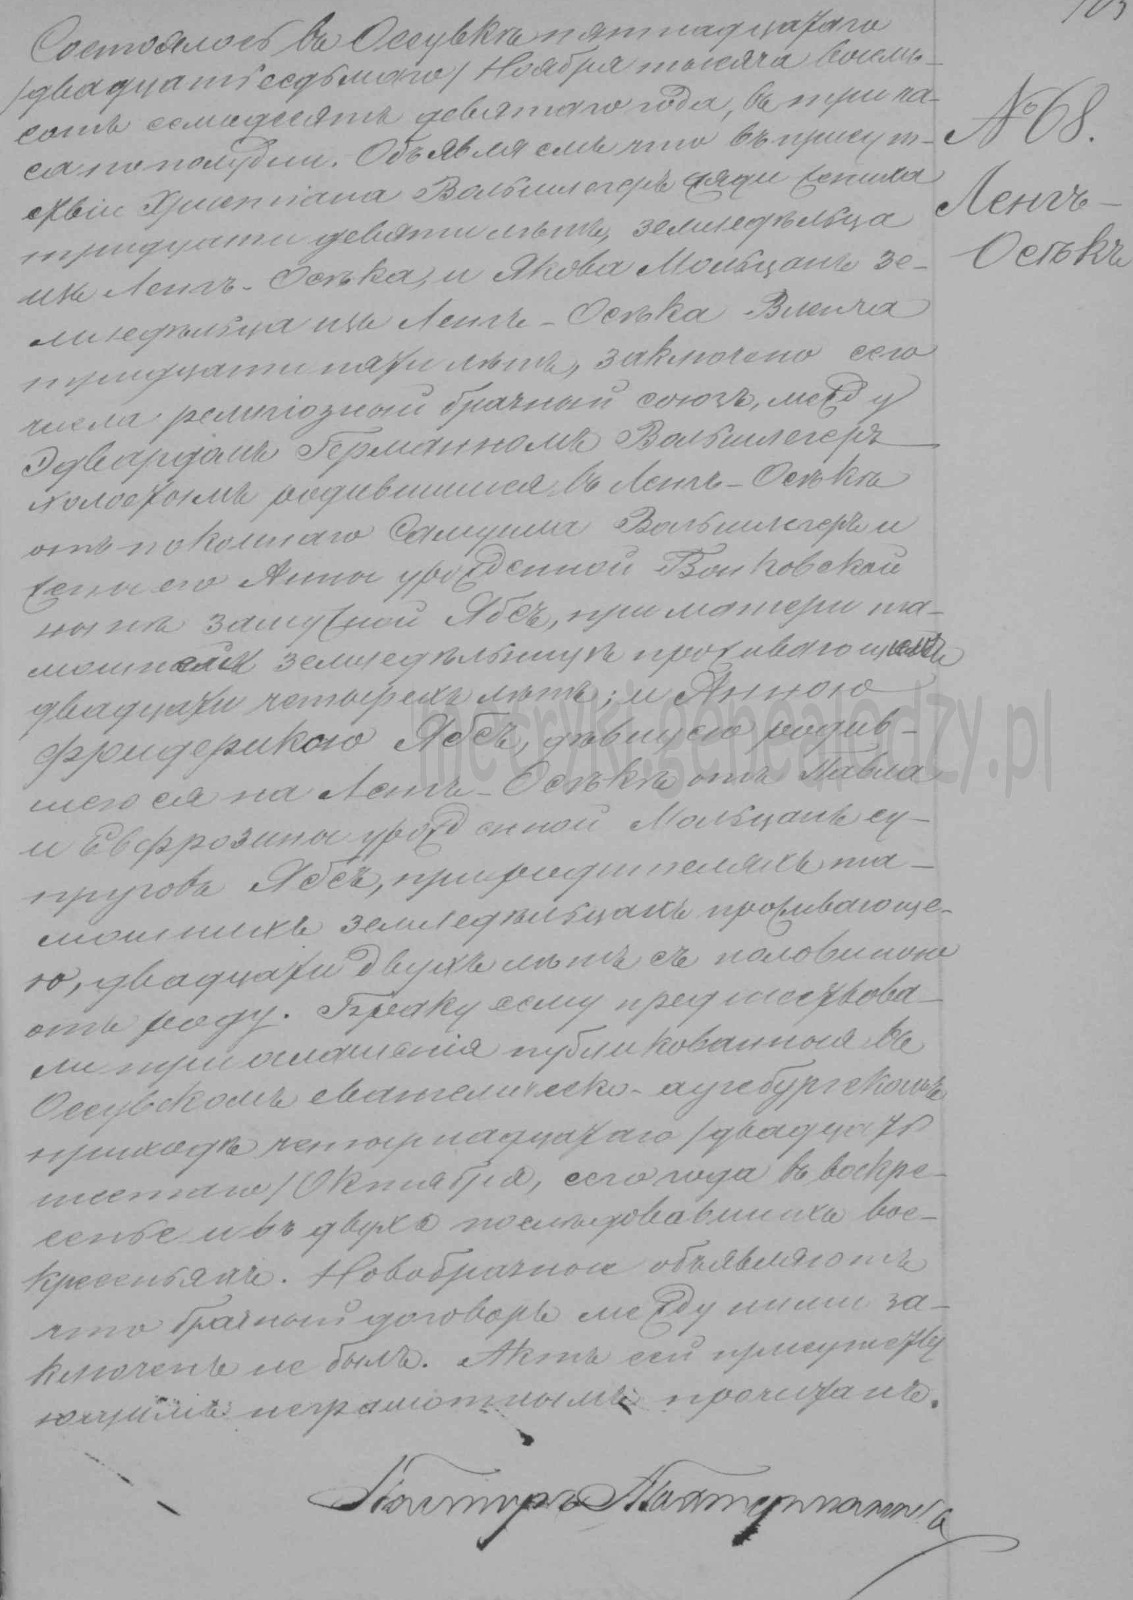 103
№ 68.
Ленгъ-
Остѣкъ
Состоялось въ Оссувкѣ пятнадцатаго
/двадцать седьмаго/ Ноября тысяча восемь-
сотъ семьдесятъ девятаго года, въ три ча-
са по полудни. Объявляемъ что въ присут-
ствіи Христіана Вальшлегеръ дяди жениха
тридцати девяти лѣтъ, земледѣльца
изъ Ленгъ-Остѣка, и Якова Мольцанъ зе-
мледѣльца изъ Ленгъ-Остѣка
тридцати пяти лѣтъ, заключено сего
числа религіозный брачный союзъ, между
Эдвардомъ Германномъ Вальшлегеръ
холостымъ родившимся въ Ленгъ-Остѣкѣ
отъ покойнаго Самуила Вальшлегеръ и
жены его Анны урожденной Вонковской
нынѣ замужной Ябсъ, при матери та-
мошней земледѣльницѣ проживающемъ
двадцати четырехъ лѣтъ; и Анною
Фридерикою Ябсъ, дѣвицею родив-
шеюся на Ленгъ-Остѣкѣ отъ Павла
и Евфрозины урожденной Мольцанъ су-
пруговъ Ябсъ, при родителяхъ та-
мошнихъ земледѣльцахъ проживающе-
ю, двадцати двухъ лѣтъ съ половиною
отъ роду. Браку сему предшествова-
ли три оглашенія публикованныя въ
Оссувскомъ евангелическо-аугсбургскомъ
приходѣ четырнадцатаго /двадцать
шестаго/ Октября, сего года въ воскре-
сенье и въ двухъ послѣдовавшихъ вос-
кресеньяхъ. Новобрачные объявляютъ
что брачный договоръ между ними за-
ключенъ не былъ. Актъ сей присутству-
ющимъ неграмотнымъ прочитанъ.
Пасторъ
metryki.genealodzy.pl